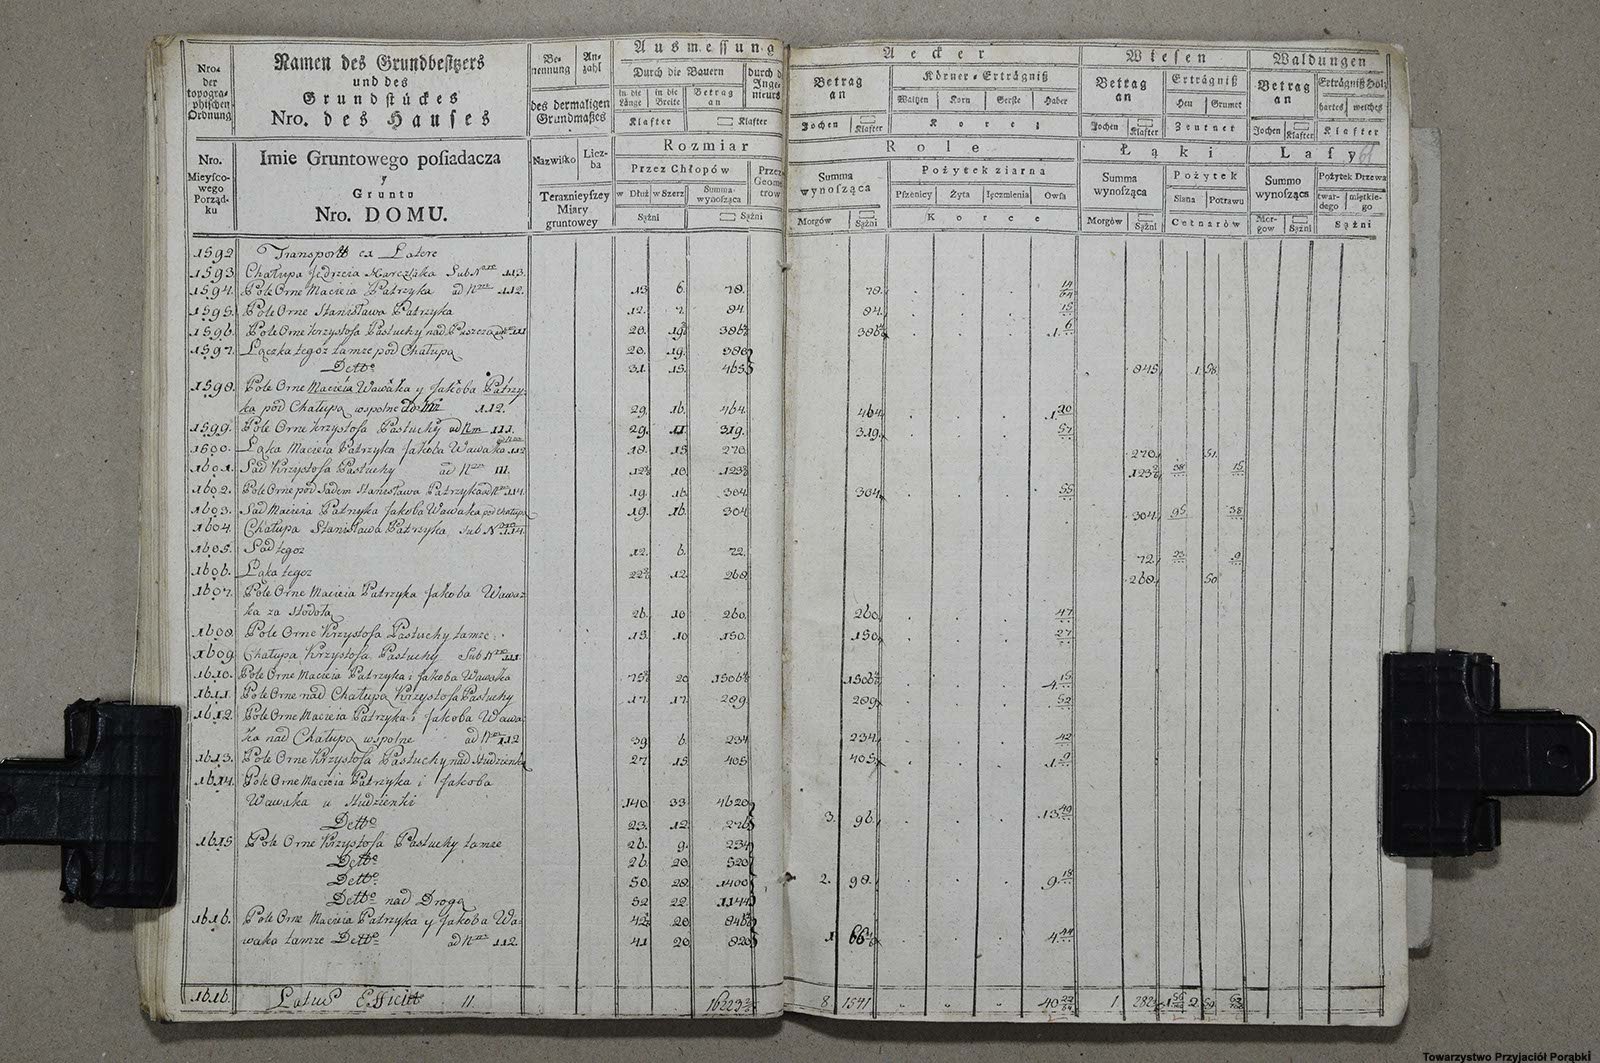 Nro. der topogra- phischen Ordnung
Namen des Grundbesitzers
und des
Grundstückes
Nro. des Hauses
Be- nennung
An- zahl
des dermaligen
Grundmaßes
Ausmessung
Durch die Bauern
durch d Inge- nieurs
in die Länge
in die Breite
Betrag an
Klafter
Klafter
Aecker
Betrag an
Körner-Erträgniß
Waitzen Korn Gerste Haber
Jochen Klafter
Korez
Wiesen
Betrag an
Erträgniß
Heu Grumet
Jochen Klafter
Zentner
Waldungen
Betrag an
Erträgniß Holz
hartes weiches
Jochen Klafter
Klafter
Nro. Mieysco- wego Porząd- ku
Imie Gruntowego posiadacza
y
Gruntu
Nro. DOMU.
Nazwisko
Licz- ba
Teraznieyszey
Miary
gruntowey
Rozmiar
Przez Chłopów
Przez Geome trow
w Dłuż w Szerz
Summa- wynosząca
Sążni
Sążni
Role
Summa wynosząca
Pożytek ziarna
Pszenicy Żyta Jęczmienia Owsa
Morgów Sążni
Korce
Łąki
Summa wynosząca
Pożytek
Siana Potrawu
Morgów Sążni
Cetnarów
Lasy
61
Summo wynosząca
Pożytek Drzewa
twar- dego
miętkie- go
Mor- gow
Sążni
Sążni
1592 Transport ex Latere
1593 Chałupa Jędrzeia Marczlaka Sub Nro 113.
1594. Pole Orne Macieia Patrzyka ad Nrm 112. 13 6. 78. 78. 14/64
1595. Pole Orne Stanisława Patrzyka 12. 7. 84. 84. 15
1596. Pole Orne Krzysztofa Pastuchy nad Puszczą 111 20.
1597. Łączka tegoż tamże pod Chałupą 20. 19. 380
Detto 31. 15. 465 845 1. 58.
1598. Pole Orne Macieia Wawaka y Jakoba Patrzy-
ka pod Chałupą wspolne 112. 29. 16. 464. 464. 1 20
1599. Pole Orne Krzysztofa Pastuchy ad Nrm 111. 29. 11 319. 319. 57
1600. Łąka Macieia Patrzyka Jakoba Wawaka 112 18. 15 270. 270. 51.
1601. Sad Krzysztofa Pastuchy ad Nrm 111. 10. 38 15
1602. Pole Orne pod Sadem Stanisława Patrzyka ad Nrm 114. 19. 16. 304. 304. 55
1603. Sad Macieia Patrzyka Jakoba Wawaka pod Chałupą 19. 16. 304 304. 95 38
1604. Chałupa Stanisława Patrzyka sub Nro 114.
1605. Sad tegoż 12. 6. 72. 72. 23 9
1606. Łąka tegoż 12. 268 268. 50
1607. Pole Orne Macieia Patrzyka Jakoba Wawa-
ka za Stodołą 26. 10 260. 260. 47
1608. Pole Orne Krzysztofa Pastuchy tamże. 15. 10 150. 150. 27
1609. Chałupa Krzysztofa Pastuchy Sub Nro 111.
1610. Pole Orne Macieia Patrzyka i Jakoba Wawaka 20 4 15
1611. Pole Orne nad Chałupą Krzysztofa Pastuchy 17. 17. 289. 289. 52
1612. Pole Orne Macieia Patrzyka i Jakoba Wawa-
ka nad Chałupą wspolne ad Nrm 112 39. 6. 234 234. 42
1613. Pole Orne Krzysztofa Pastuchy nad Studzienką 27 15 405 405. 1 9
1614. Pole Orne Macieia Patrzyka i Jakoba
Wawaka u Studzienki 140 33 4620
Detto 23. 12. 276 3. 96. 13 49
1615 Pole Orne Krzysztofa Pastuchy tamże 26. 9. 234
Detto 26. 20. 520
Detto 50 28 1400 2. 98. 9 18
Detto nad Drogą 52 22. 1144
1616. Pole Orne Macieia Patrzyka y Jakoba Wa-
waka tamże Detto ad Nrm 112. 41 20 820 1 4 44
1616. Latus Efficit 11. 8 1541 40 22/64 1
Towarzystwo Przyjaciół Porąbki